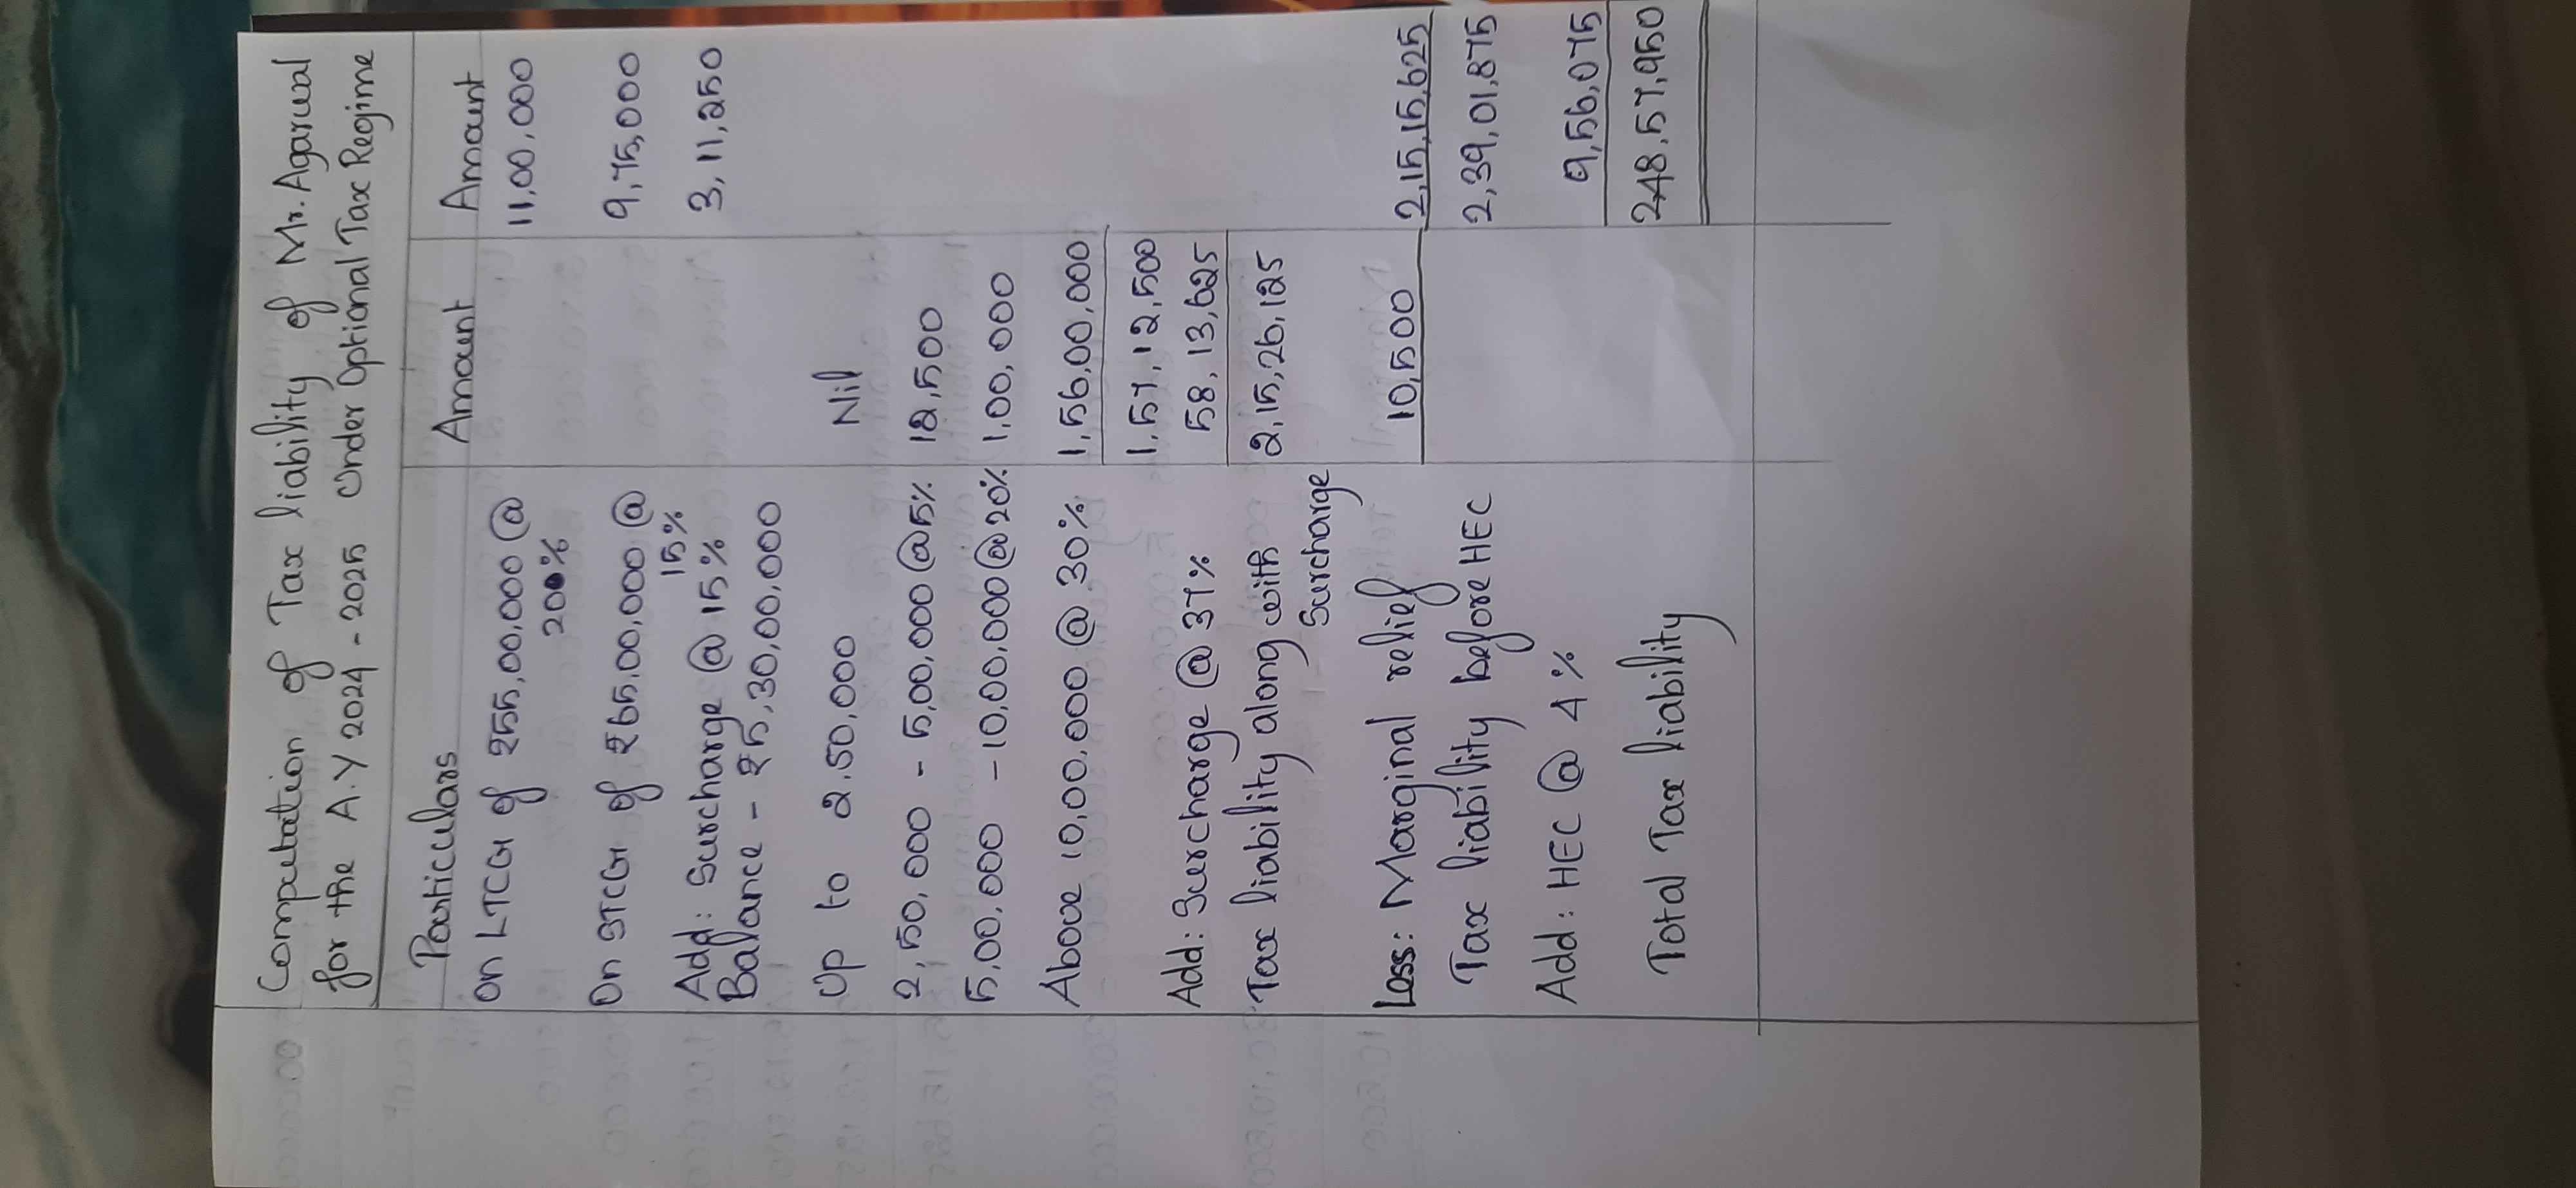 Computation of Tax liability of Mr. Agarwal
for the A.Y 2024 - 2025 Under Optional Tax Regime
Particulars Amount Amount
On LTCG of ₹55,00,000 @ 20% 11,00,000
On STCG of ₹65,00,000 @ 15% 9,75,000
Add: Surcharge @ 15% 3,11,250
Balance - ₹5,30,00,000
Up to 2,50,000 Nil
2,50,000 - 5,00,000 @ 5% 12,500
5,00,000 - 10,00,000 @ 20% 1,00,000
Above 10,00,000 @ 30% 1,56,00,000
1,57,12,500
Add: Surcharge @ 37% 58,13,625
Tax liability along with Surcharge 2,15,26,125
Less: Marginal relief 10,500 2,15,15,625
Tax liability before HEC 2,39,01,875
Add: HEC @ 4% 9,56,075
Total Tax liability 2,48,57,950